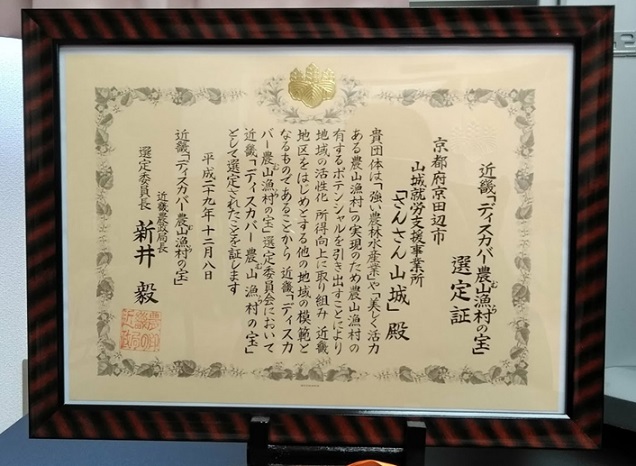 近畿「ディスカバー農山漁村の宝」
選定証
京都府京田辺市
山城就労支援事業所
「さんさん山城」殿
貴団体は「強い農林水産業」や「美しく活力
ある農山漁村」の実現のため農山漁村の
有するポテンシャルを引き出すことにより
地域の活性化・所得向上に取り組み 近畿
地区をはじめとする他の地域の模範と
なるものであることから 近畿「ディスカ
バー農山漁村の宝」選定委員会において
近畿「ディスカバー農山漁村の宝」
として選定されたことを証します
平成二十九年十二月八日
近畿「ディスカバー農山漁村の宝」
選定委員長
近畿農政局長
新井 毅